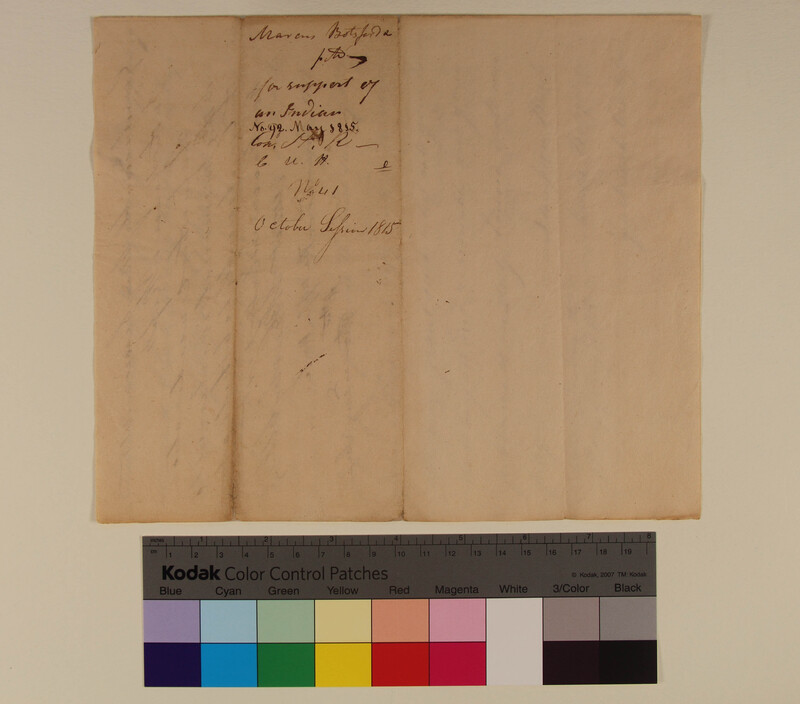 Marcus Botsfords
ptn
for support of
an Indian
No. 92. May 1815.
Con, H, R —
C. U. H.
No 41
October Session 1815
inches 1 2 3 4 5 6 7 8
cm 1 2 3 4 5 6 7 8 9 10 11 12 13 14 15 16 17 18 19
Kodak Color Control Patches
© Kodak, 2007 TM: Kodak
Blue Cyan Green Yellow Red Magenta White 3/Color Black